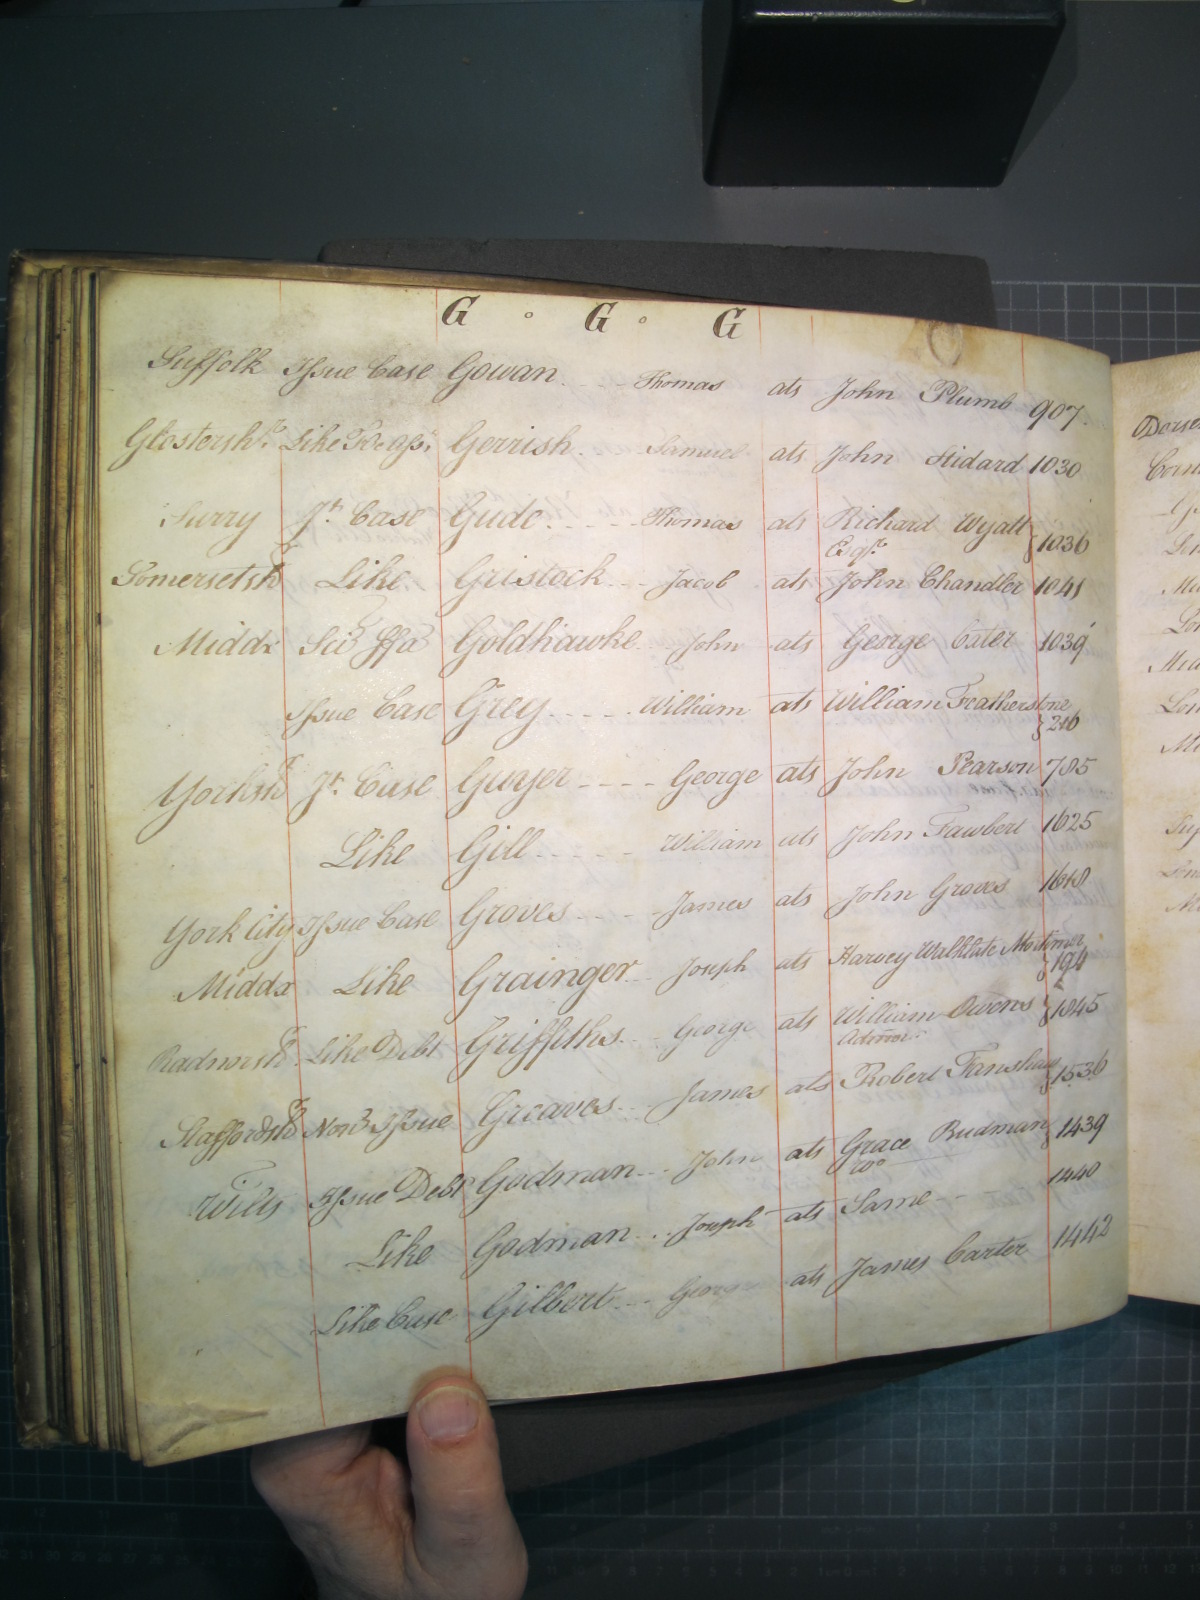 G o G o G
Suffolk Issue Case Gowan Thomas ats John Plumb 907
Glostersh.r Like Gerrish Samuel ats John Stidard 1030
Surry J.t Case Gude Thomas ats Richard Wyatt
Esq.r } 1036
Somersetsh.r Like Gristock Jacob ats John Chandler 1041
Middx Sci ffa Goldhawke John ats George Cater 1039
Issue Case Grey William ats William Featherstone
} 216
Yorksh.r J.t Case Guyer George ats John Pearson 785
Like Gill William ats John Fawbert 1625
York City Issue Case Groves James ats John Groves
Middx Like Grainger Joseph ats Harvey Walklate Mortimer
} 194
Radnorsh.r Like Debt Griffiths George ats William Owens } 1845
Admor.
Staffordsh.r Issue Greaves James ats Robert Fanshaw
} 1536
Wilts Issue Debt Godman John ats Grace Rudman } 1439
Wo
Like Godman Joseph ats Same 1440
Like Case Gilbert George ats James Carter 1442
Dorse